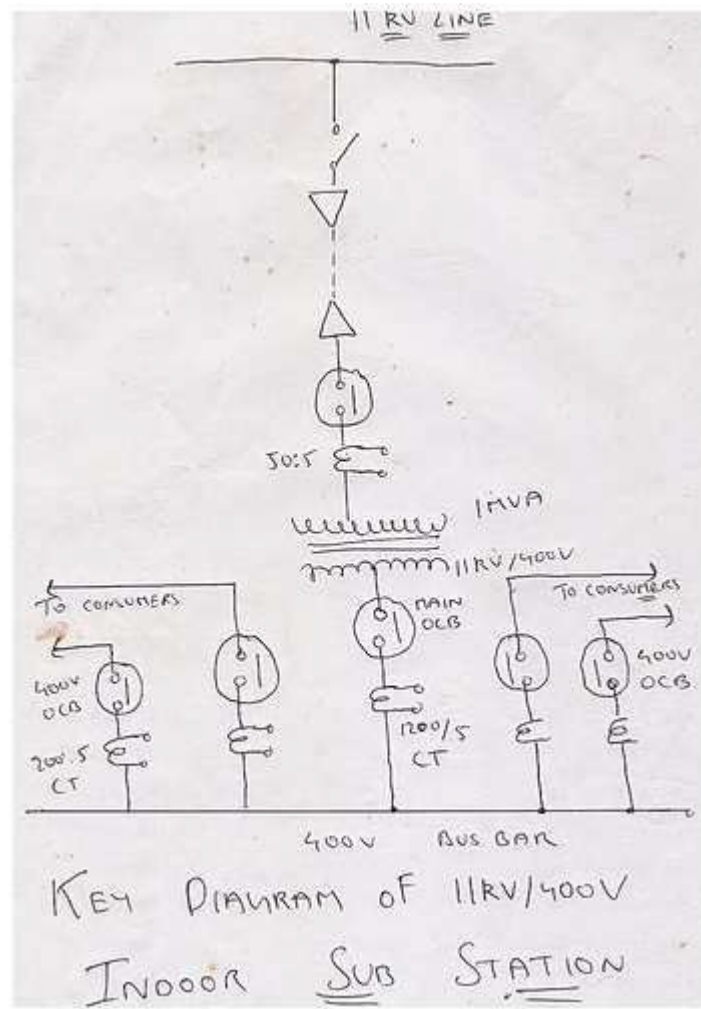 11 KV LINE
50:5
1 MVA
11KV/400V
TO CONSUMERS
MAIN
OCB
TO CONSUMERS
400V
OCB
400V
OCB
200:5
CT
1200/5
CT
400V BUS BAR
KEY DIAGRAM OF 11KV/400V
INDOOR SUB STATION